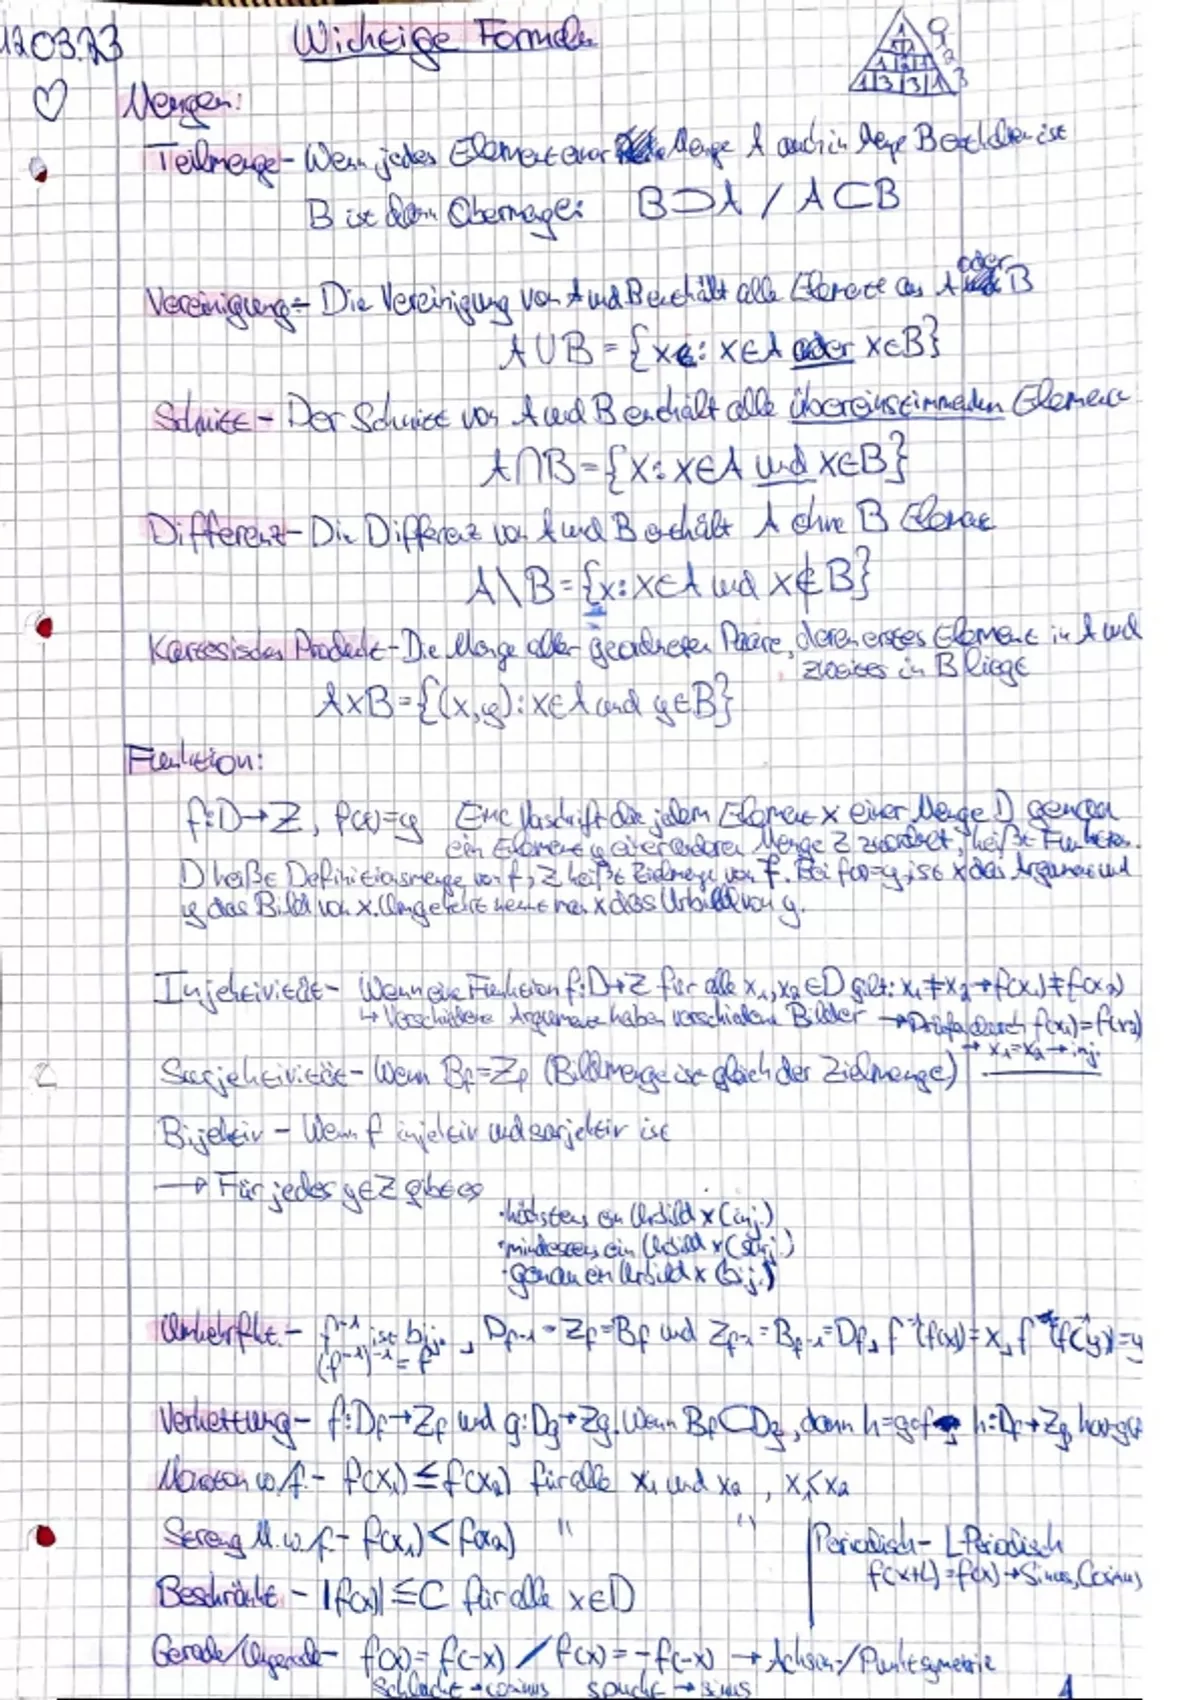 12.03.23
Wichtige Formeln
1
1 1
1 2 1
1 3 3 1
0
2
3
Mengen:
Teilmenge - Wenn jedes Element einer Menge A auch in Menge B enthalten ist
B ist dann Obermenge: B⊃A / A⊂B
oder
Vereinigung - Die Vereinigung von A und B enthält alle Elemente aus A B
A∪B = {x: x∈A oder x∈B}
Schnitt - Der Schnitt von A und B enthält alle übereinstimmenden Elemente
A∩B = {x: x∈A und x∈B}
Differenz - Die Differenz von A und B enthält A ohne B Elemente
A\B = {x: x∈A und x∉B}
Kartesisches Produkt - Die Menge aller geordneten Paare, deren erstes Element in A und
zweites in B liegt
A×B = {(x,y): x∈A und y∈B}
Funktion:
f: D→Z, f(x)=y Eine Vorschrift die jedem Element x einer Menge D genau
ein Element y einer anderen Menge Z zuordnet, heißt Funktion.
D heißt Definitionsmenge von f, Z heißt Zielmenge von f. Bei f(x)=y, ist x das Argument und
y das Bild von x. Umgekehrt nennt man x das Urbild von y.
Injektivität - Wenn eine Funktion f: D→Z für alle x₁, x₂ ∈D gilt: x₁≠x₂→f(x₁)≠f(x₂)
↳ Verschiedene Argumente haben verschiedene Bilder → Prüfe durch f(x₁)=f(x₂)
→ x₁=x₂ → inj.
Surjektivität - Wenn Bf=Zf (Bildmenge ist gleich der Zielmenge)
Bijektiv - Wenn f injektiv und surjektiv ist
→ Für jedes y∈Z gibt es
· höchstens ein Urbild x (inj.)
· mindestens ein Urbild x (surj.)
· genau ein Urbild x (bij.)
Umkehrfkt. - f⁻¹ ist bij., Df⁻¹ = Zf = Bf und Zf⁻¹ = Bf⁻¹ = Df, f⁻¹(f(x)) = x, f (f⁻¹(y)) = y
(f⁻¹)⁻¹ = f
Verkettung - f: Df→Zf und g: Dg→Zg. Wenn Bf⊂Dg, dann h=g∘f h: Df→Zg,
Monoton w.f. - f(x₁) ≤ f(x₂) für alle x₁ und x₂, x₁<x₂
Streng M.w.f. - f(x₁) < f(x₂) " "
Periodisch - L-Periodisch
f(x+L) = f(x) → Sinus, Cosinus
Beschränkt - |f(x)| ≤ C für alle x∈D
Gerade/Ungerade - f(x) = f(-x) / f(x) = -f(-x) → Achsen-/Punktsymmetrie
→ cosinus → sinus
1